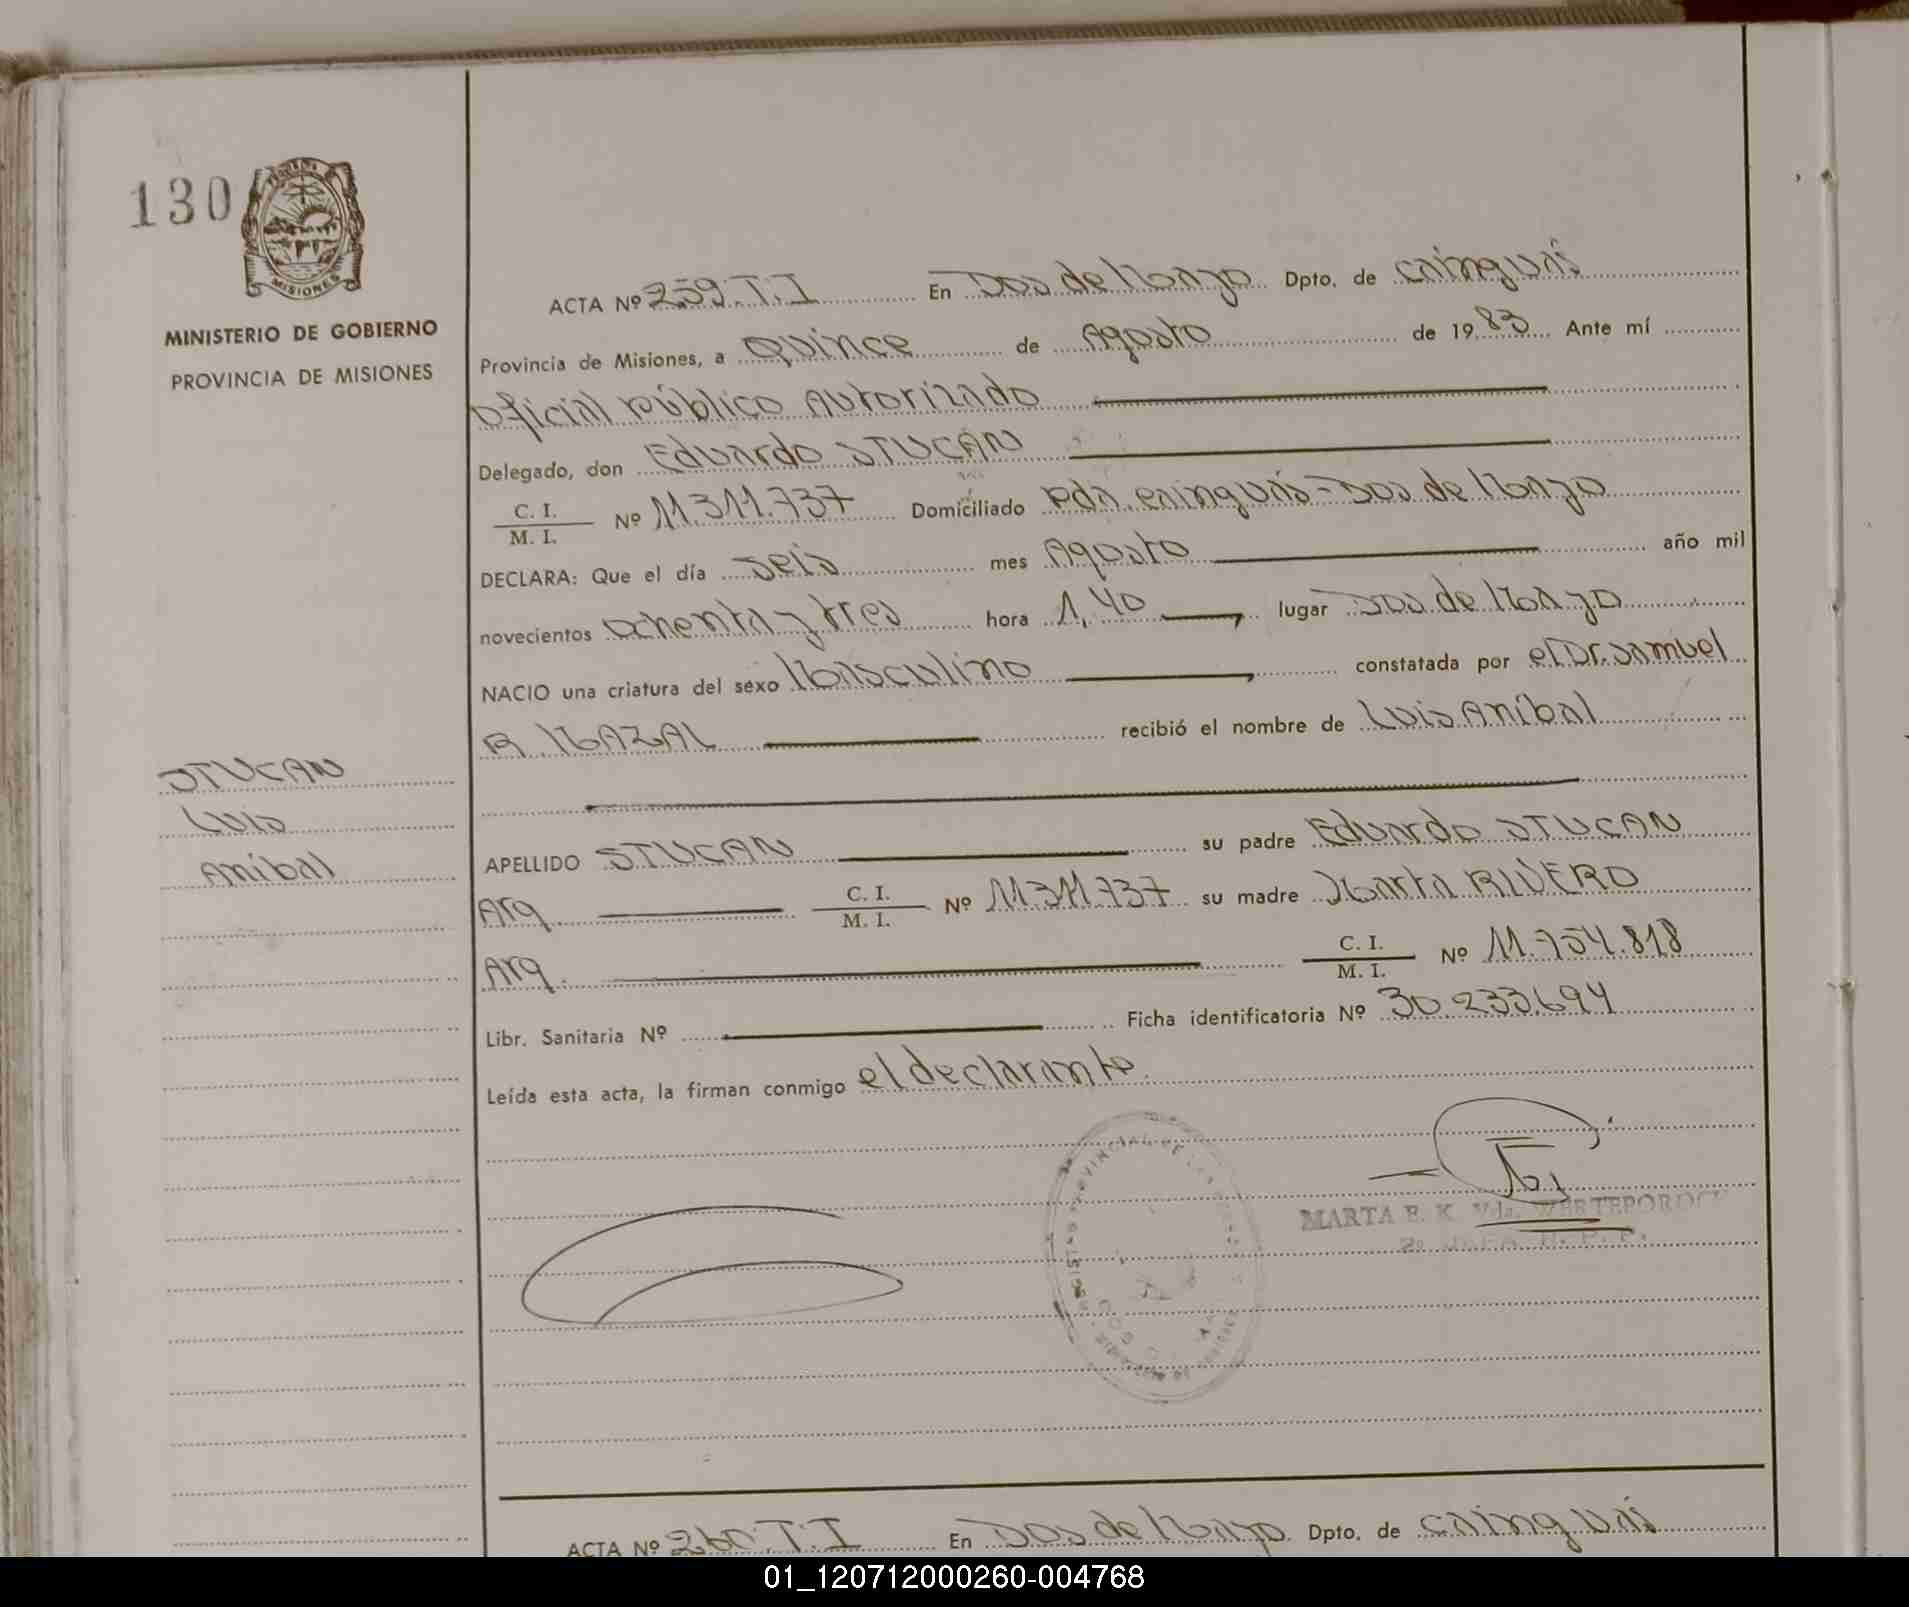 130
MISIONES
MINISTERIO DE GOBIERNO
PROVINCIA DE MISIONES
ACTA Nº 259.T.I En Dos de Mayo Dpto. de Cainguás
Provincia de Misiones, a Quince de Agosto de 1983 Ante mí
Oficial Público Autorizado
Delegado, don Eduardo STUCAN
C. I.
M. I. Nº 11.311.737 Domiciliado Pdn. Cainguás - Dos de Mayo
DECLARA: Que el día seis mes Agosto año mil
novecientos ochenta y tres hora 1,40 lugar Dos de Mayo
NACIO una criatura del sexo Masculino constatada por el Dr. Samuel
R. MAZAL recibió el nombre de Luis Aníbal
STUCAN
Luis
Aníbal
APELLIDO STUCAN su padre Eduardo STUCAN
Arg. C. I.
M. I. Nº 11.311.737 su madre Marta RIVERO
Arg. C. I.
M. I. Nº 11.754.818
Libr. Sanitaria Nº Ficha identificatoria Nº 30.233.694
Leída esta acta, la firman conmigo el declarante.
MARTA E. K. Vda. WERTEPOROCH
ACTA Nº 260.T.I En Dos de Mayo Dpto. de Cainguás
01_120712000260-004768